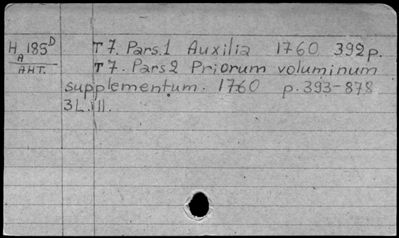 H 185D T 7. Pars.1 Auxilia 1760 392 p.
A
AHT. T 7. Pars 2 Priorum voluminum
supplementum. 1760 p. 393-878
3L. ill.